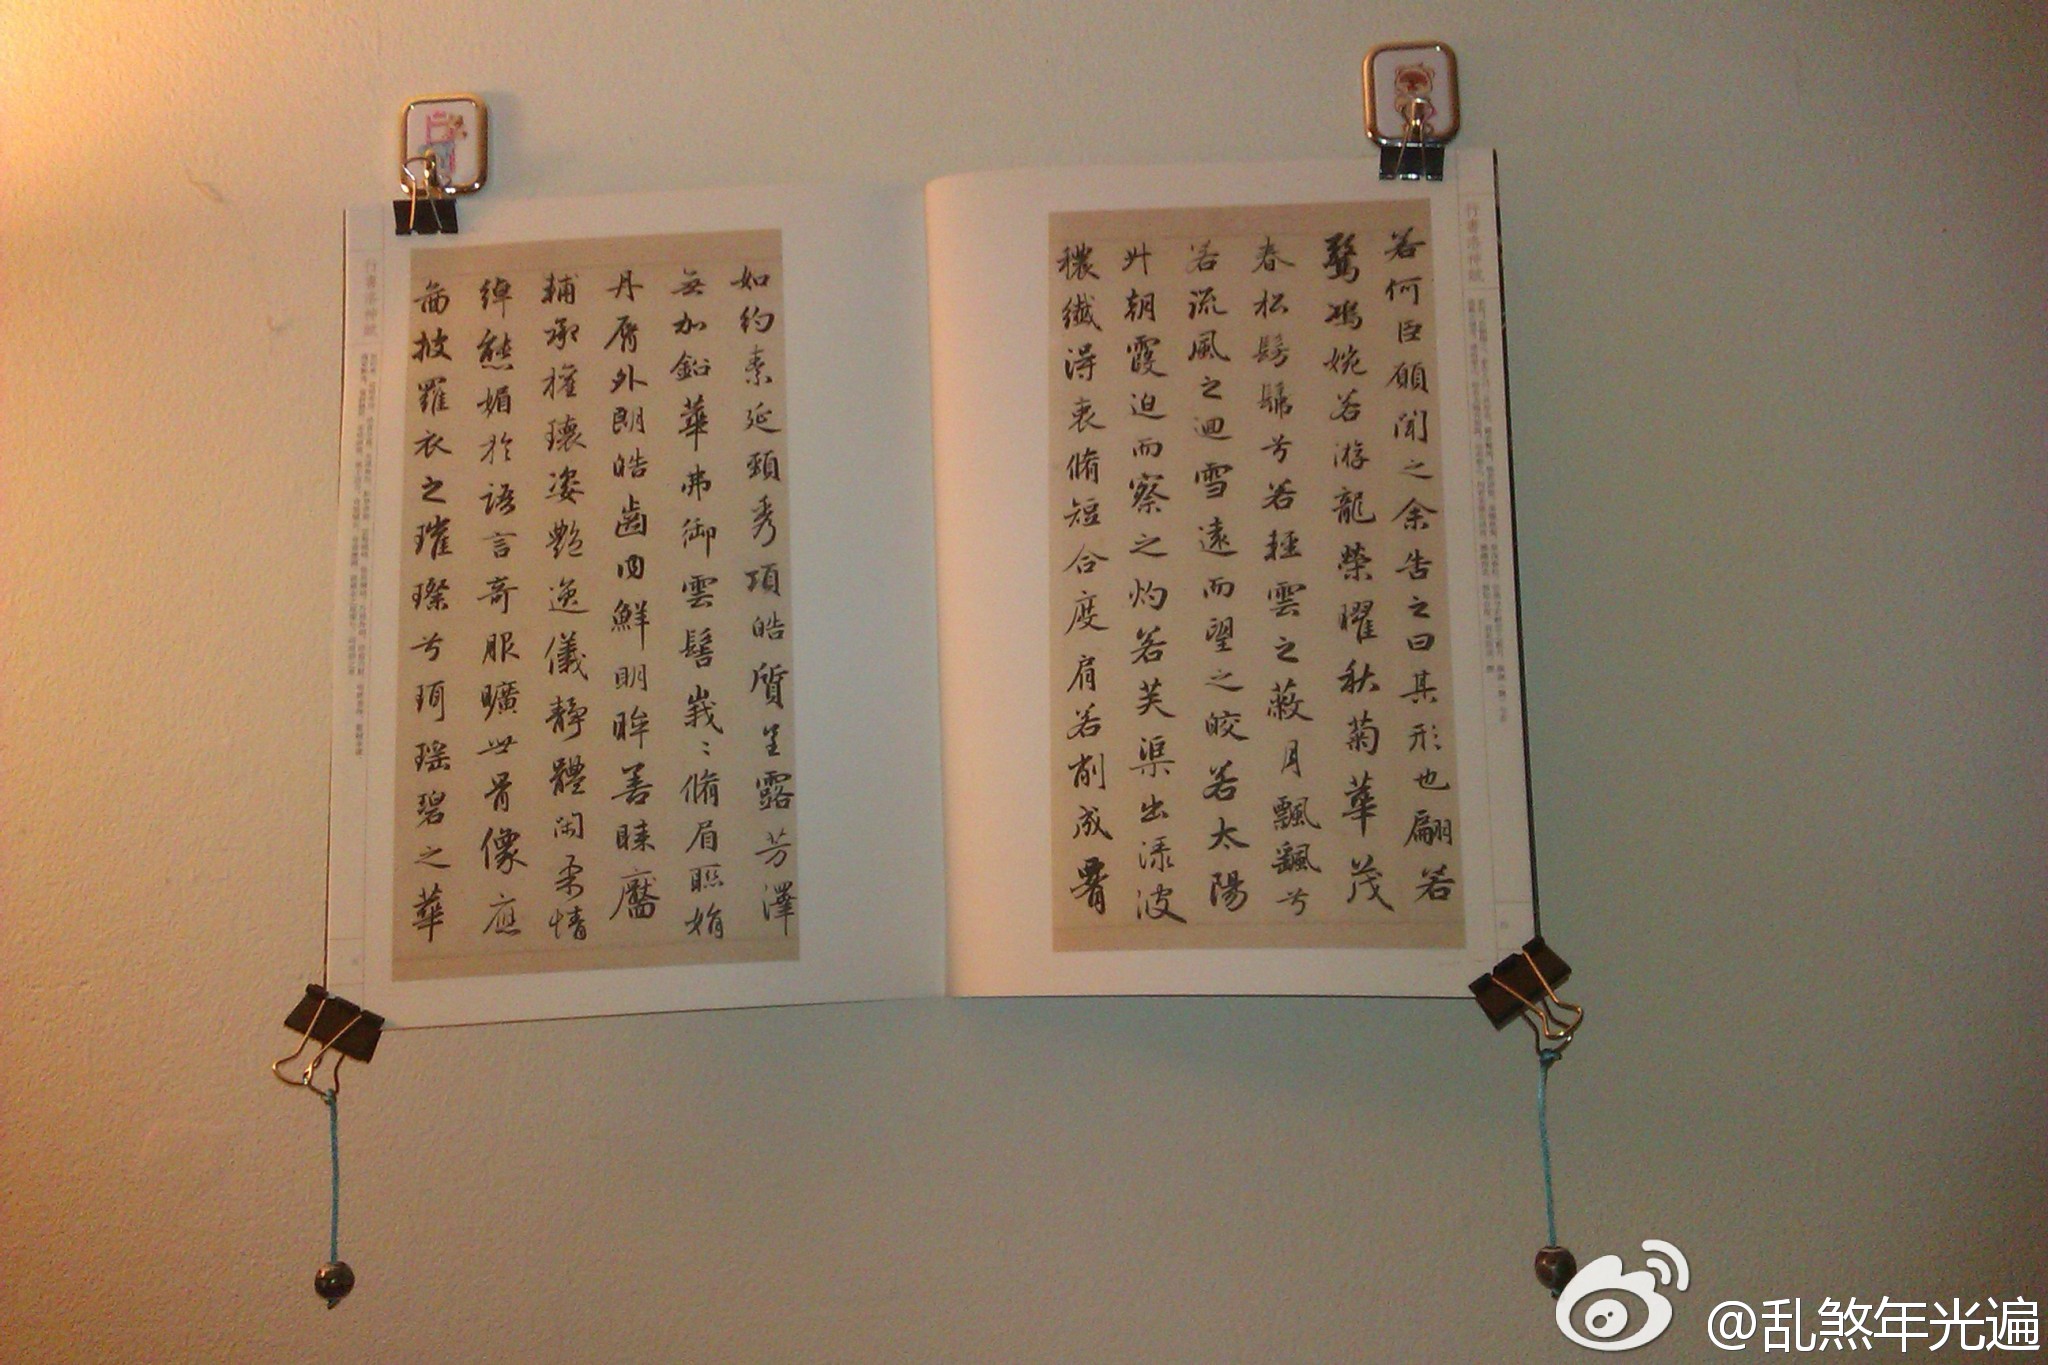 行書洛神賦
若何臣願聞之余告之曰其形也翩若
驚鴻婉若游龍榮曜秋菊華茂
春松髣髴兮若輕雲之蔽月飄飖兮
若流風之迴雪遠而望之皎若太陽
升朝霞迫而察之灼若芙渠出淥波
穠纖得衷脩短合度肩若削成腰
如約素延頸秀項皓質呈露芳澤
無加鉛華弗御雲髻峩〻脩眉聯娟
丹脣外朗皓齒内鮮明眸善睞靨
輔承權瓌姿艷逸儀靜體閑柔情
綽態媚於語言奇服曠世骨像應
啚披羅衣之璀璨兮珥瑤碧之華
行書洛神賦
@乱煞年光遍